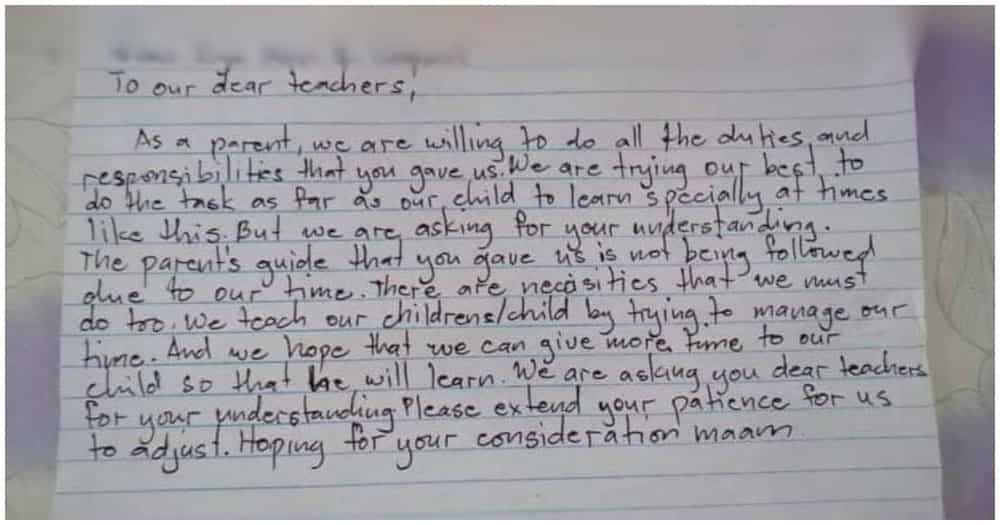 To our dear teachers,
As a parent, we are willing to do all the duties and
responsibilities that you gave us. We are trying our best to
do the task as far as our child to learn specially at times
like this. But we are asking for your understanding.
The parent's guide that you gave us is not being followed
due to our time. There are necositities that we must
do too. We teach our childrens/child by trying to manage our
time. And we hope that we can give more time to our
child so that he will learn. We are asking you dear teachers
for your understanding Please extend your patience for us
to adjust. Hoping for your consideration maam.